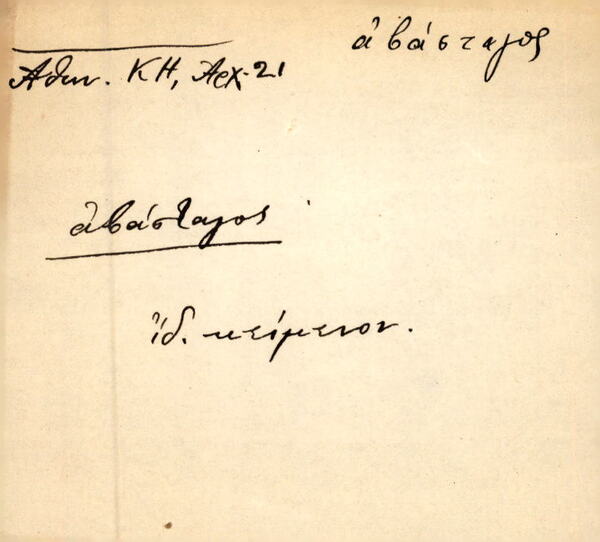 ἀβάσταγος
Ἀθην. ΚΗ, Ἀρχ. 21
ἀβάσταγος
ἰδ. κείμενον.